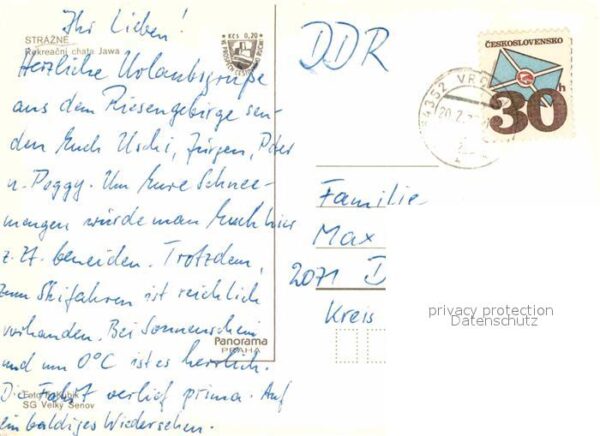 Ihr Lieben!
STRÁŽNÉ
Rekreační chata Jawa
Herzliche Urlaubsgrüße
aus dem Riesengebirge sen-
den Euch Uschi, Jürgen, Peter
u. Peggy. Um Eure Schnee-
mengen würde man Euch hier
z. Zt. beneiden. Trotzdem,
zum Skifahren ist reichlich
vorhanden. Bei Sonnenschein
und um 0°C ist es herrlich.
Die Fahrt verlief prima. Auf
ein baldiges Wiedersehen.
Foto
SG Velký Šenov
Kčs 0,20
Panorama
PRAHA
DDR
ČESKOSLOVENSKO
30h
4352 VRC
20.2.7
Familie
Max
2071 D
Kreis
privacy protection
Datenschutz